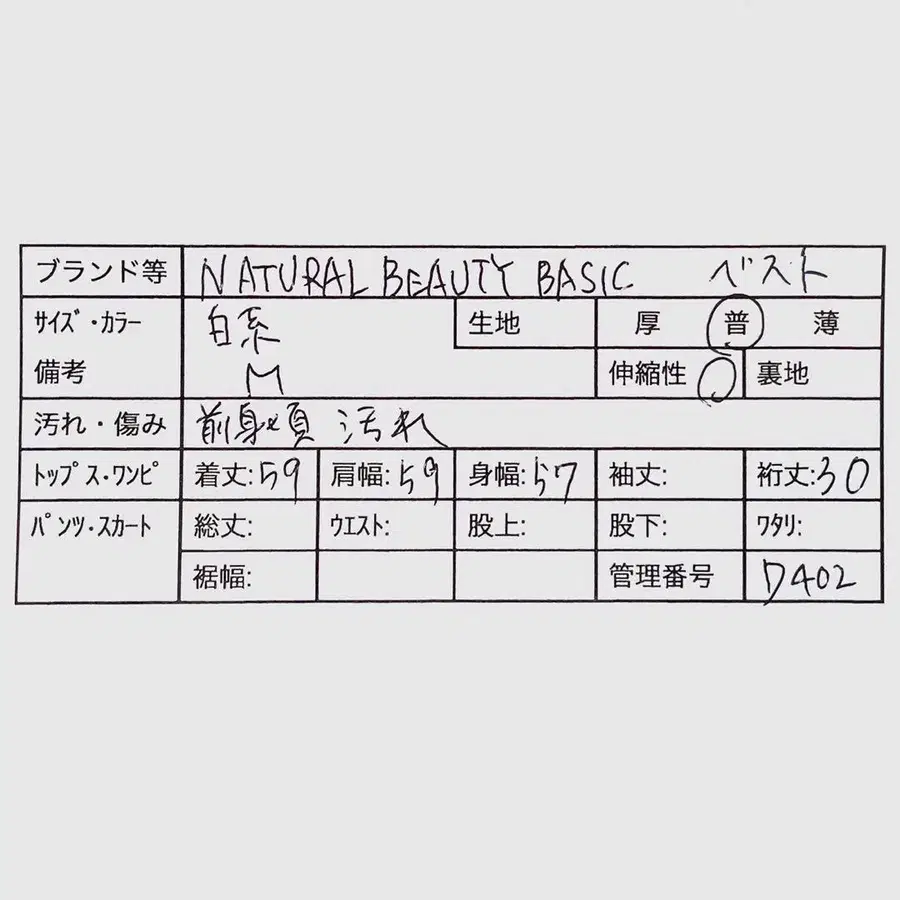 ブランド等 NATURAL BEAUTY BASIC ベスト
サイズ・カラー 白系 生地 厚 普 薄
備考 M 伸縮性 ○ 裏地
汚れ・傷み 前身頃 汚れ
トップス・ワンピ 着丈:59 肩幅:59 身幅:57 袖丈: 裄丈:30
パンツ・スカート 総丈: ウエスト: 股上: 股下: ワタリ:
裾幅: 管理番号 D402